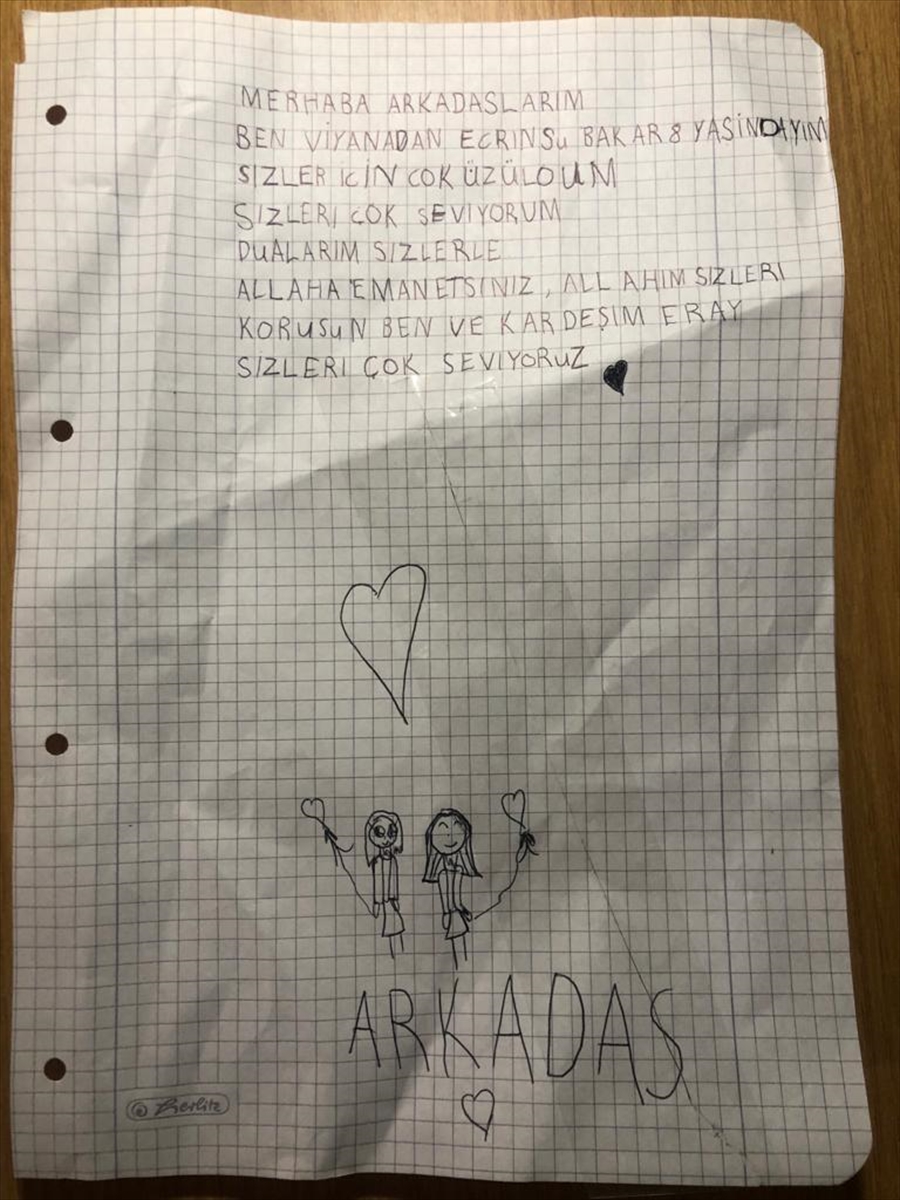 MERHABA ARKADASLARIM
BEN VİYANADAN ECRINSu BAKAR 8 YAŞINDAYIM
SIZLER iCİN COK ÜZÜLDUM
SIZLERI COK SEVIYORUM
DUALARIM SIZLERLE
ALLAHA EMANETSINIZ, ALLAHIM SIZLERI
KORUSuN BEN VE KARDEŞIM ERAY
SIZLERI ÇOK SEVIYORUZ
ARKADAS
© Herlitz